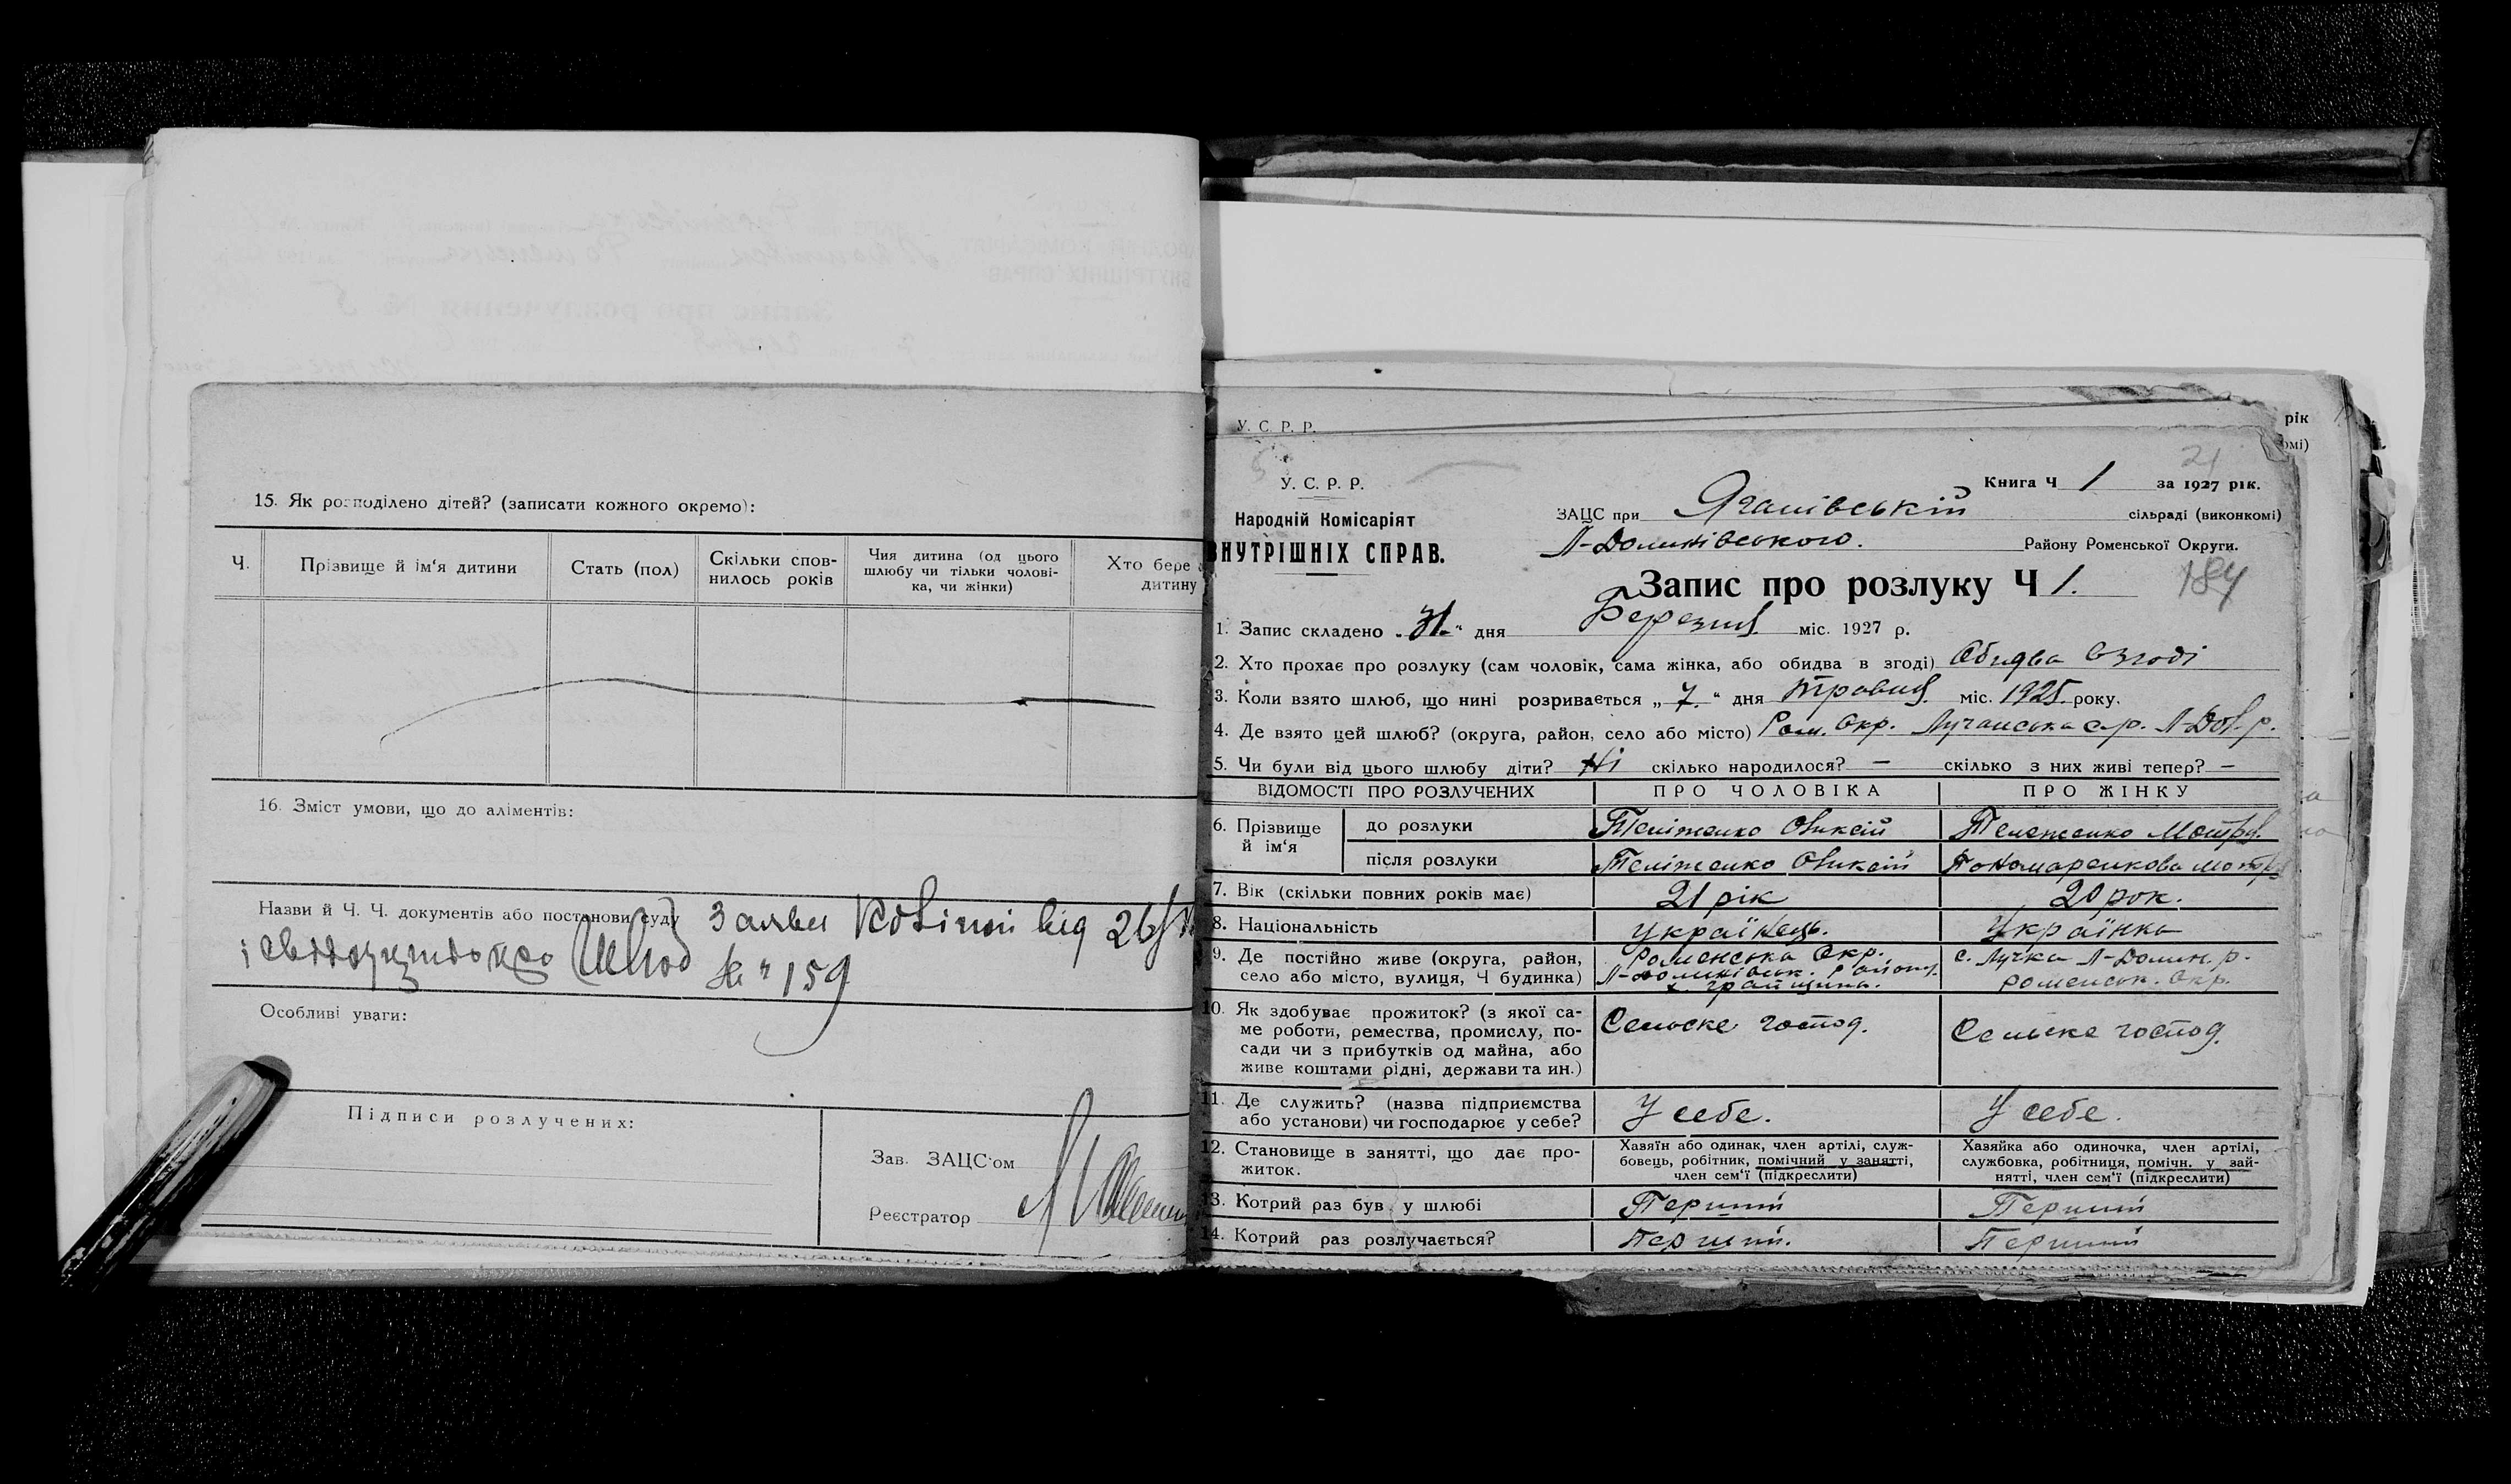 15. Як розподілено дітей? (записати кожного окремо):
Ч. Прізвище й ім'я дитини Стать (пол) Скільки сповнилось років Чия дитина (од цього шлюбу чи тільки чоловіка, чи жінки) Хто бере дитину
16. Зміст умови, що до аліментів:
Назви й Ч. Ч. документів або постанови суду від 26/
№ 159
Особливі уваги:
Підписи розлучених:
Зав. ЗАЦС'ом
Реєстратор
У. С. Р. Р.
рік
омі)
21
У. С. Р. Р.
Книга Ч 1 за 1927 рік.
Народній Комісаріят
ЗАЦС при Яганівській сільраді (виконкомі)
ВНУТРІШНІХ СПРАВ.
Л-Долинівського. Району Роменської Округи.
Запис про розлуку Ч 1.
184
1. Запис складено „31" дня Березня міс. 1927 р.
2. Хто прохає про розлуку (сам чоловік, сама жінка, або обидва в згоді) Обидва в згоді
3. Коли взято шлюб, що нині розривається „7" дня травня міс. 1925 року.
4. Де взято цей шлюб? (округа, район, село або місто) Ром. Окр. Лучанська с/р. Л-Дол. р.
5. Чи були від цього шлюбу діти? Ні скілько народилося? — скілько з них живі тепер? —
ВІДОМОСТІ ПРО РОЗЛУЧЕНИХ ПРО ЧОЛОВІКА ПРО ЖІНКУ
6. Прізвище й ім'я до розлуки Теліженко Теleженко Мотря
після розлуки Теліженко Пономаренкова Мотря
7. Вік (скільки повних років має) 21 рік 20 рок.
8. Національність Українець. Українка
9. Де постійно живе (округа, район, село або місто, вулиця, Ч будинка) Роменська Окр. Л-Долинівськ. району. с. Лучка Л-Долин. р. роменськ. окр.
10. Як здобуває прожиток? (з якої саме роботи, ремества, промислу, посади чи з прибутків од майна, або живе коштами рідні, держави та ин.) Сельске господ. Сельске господ.
11. Де служить? (назва підприємства або установи) чи господарює у себе? У себе. У себе.
12. Становище в занятті, що дає прожиток. Хазяїн або одинак, член артілі, службовець, робітник, помічний у занятті, член сем'ї (підкреслити) Хазяйка або одиночка, член артілі, службовка, робітниця, помічн. у зайнятті, член сем'ї (підкреслити)
13. Котрий раз був у шлюбі Перший Перший
14. Котрий раз розлучається? Перший. Перший